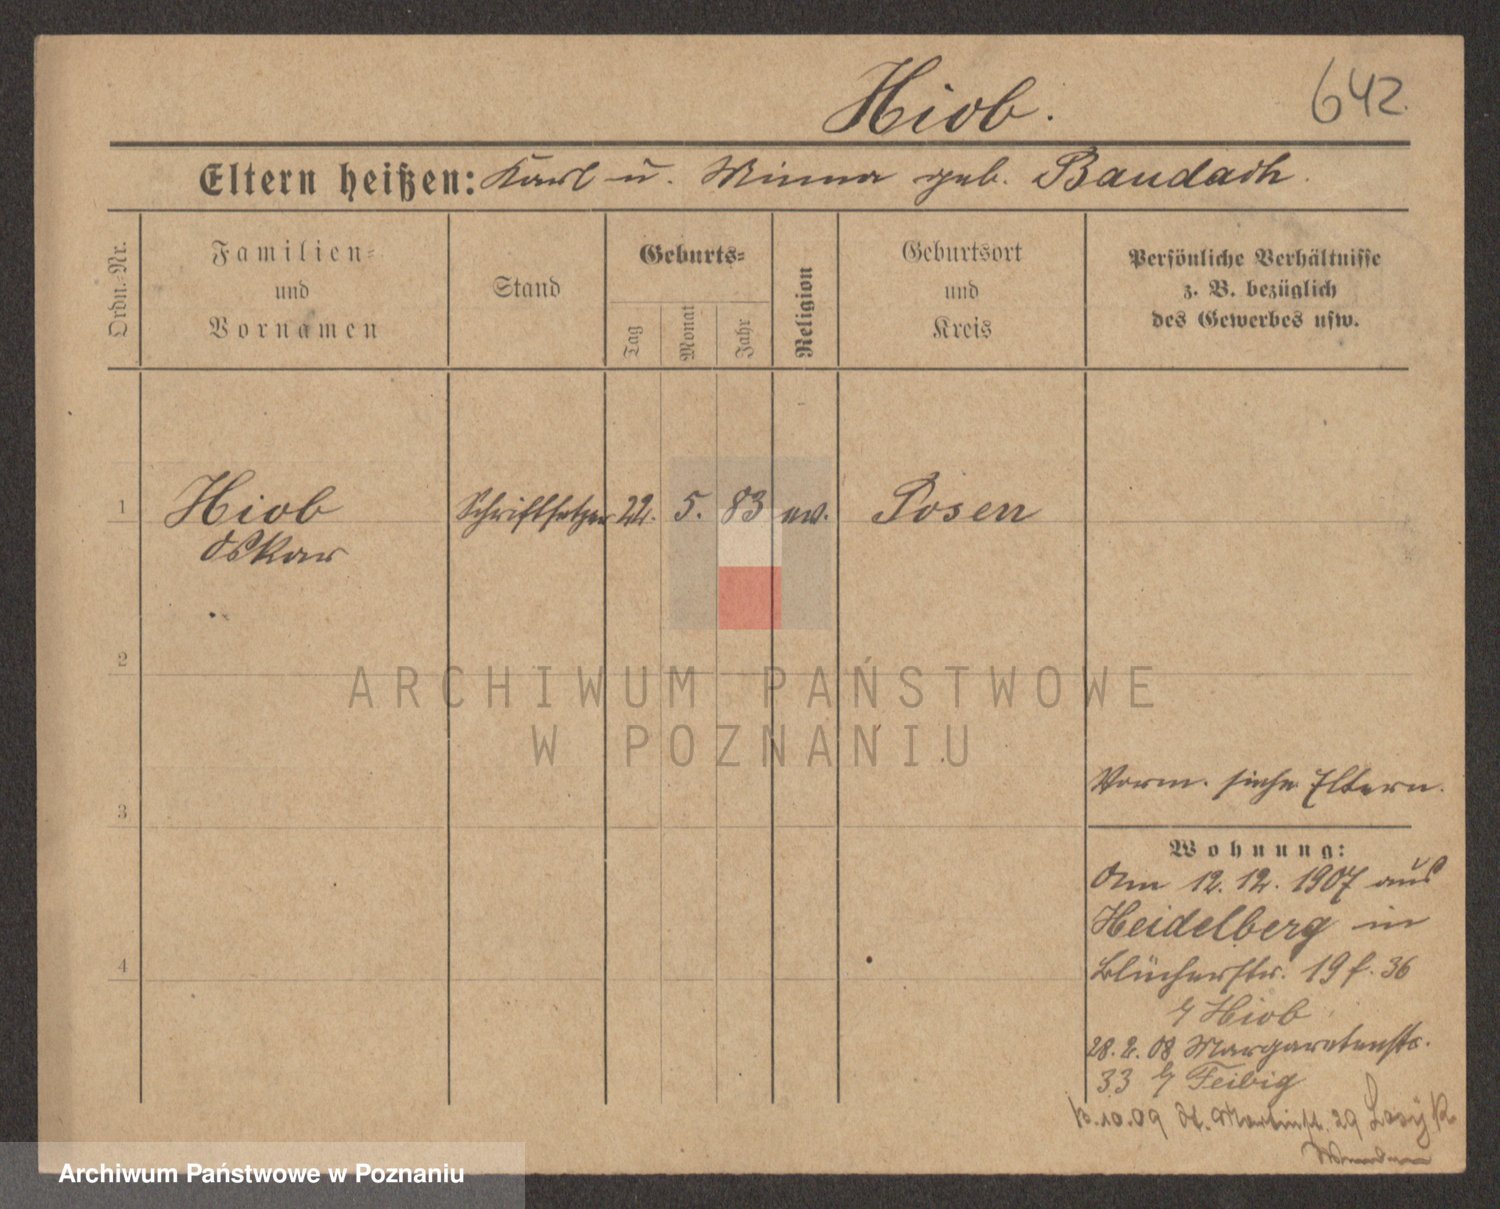 Hiob.
642.
Eltern heißen: Karl u. Minna geb. Baudach.
Ordn.-Nr.
Familien-
und
Vornamen
Stand
Geburts-
Tag
Monat
Jahr
Religion
Geburtsort
und
Kreis
Persönliche Verhältnisse
z. B. bezüglich
des Gewerbes usw.
1 Hiob Schriftsetzer 22. 5. 83 ev. Posen
Oskar
2
ARCHIWUM PAŃSTWOWE
W POZNANIU
Vorm. siehe Eltern.
3
Wohnung:
Am 12.12.1907 aus
Heidelberg in
4
Blücherstr. 19 f. 36
Hiob
28.2.08 Margaretenstr.
33 b/ Feibig
.10.09 St. Martinstr. 29
Archiwum Państwowe w Poznaniu